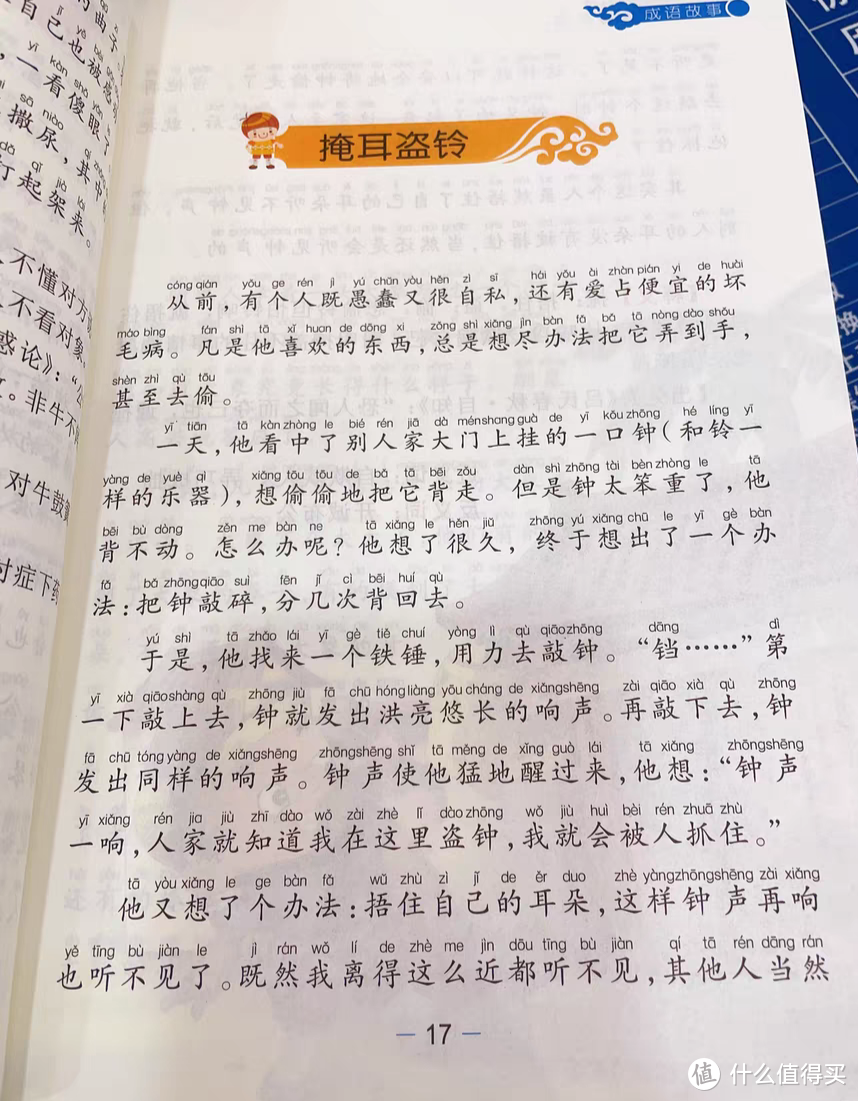 成语故事
掩耳盗铃
cóng qián yǒu ge rén jì yú chǔn yòu hěn zì sī hái yǒu ài zhàn pián yi de huài
从前，有个人既愚蠢又很自私，还有爱占便宜的坏
máo bìng fán shì tā xǐ huan de dōng xi zǒng shì xiǎng jìn bàn fǎ bǎ tā nòng dào shǒu
毛病。凡是他喜欢的东西，总是想尽办法把它弄到手，
shèn zhì qù tōu
甚至去偷。
yì tiān tā kàn zhòng le bié rén jiā dà mén shang guà de yì kǒu zhōng hé líng yī
一天，他看中了别人家大门上挂的一口钟（和铃一
yàng de yuè qì xiǎng tōu tōu de bǎ tā bēi zǒu dàn shì zhōng tài bèn zhòng le tā
样的乐器），想偷偷地把它背走。但是钟太笨重了，他
bēi bù dòng zěn me bàn ne tā xiǎng le hěn jiǔ zhōng yú xiǎng chū le yī gè bàn
背不动。怎么办呢？他想了很久，终于想出了一个办
fǎ bǎ zhōng qiāo suì fēn jǐ cì bēi huí qù
法：把钟敲碎，分几次背回去。
yú shì tā zhǎo lái yī gè tiě chuí yòng lì qù qiāo zhōng dāng dì
于是，他找来一个铁锤，用力去敲钟。“铛……”第
yī xià qiāo shàng qù zhōng jiù fā chū hóng liàng yōu cháng de xiǎng shēng zài qiāo xià qù zhōng
一下敲上去，钟就发出洪亮悠长的响声。再敲下去，钟
fā chū tóng yàng de xiǎng shēng zhōng shēng shǐ tā měng de xǐng guò lái tā xiǎng zhōng shēng
发出同样的响声。钟声使他猛地醒过来，他想：“钟声
yī xiǎng rén jia jiù zhī dào wǒ zài zhè lǐ dào zhōng wǒ jiù huì bèi rén zhuā zhù
一响，人家就知道我在这里盗钟，我就会被人抓住。”
tā yòu xiǎng le ge bàn fǎ wǔ zhù zì jǐ de ěr duo zhè yàng zhōng shēng zài xiǎng
他又想了个办法：捂住自己的耳朵，这样钟声再响
yě tīng bù jiàn le jì rán wǒ lí de zhè me jìn dōu tīng bù jiàn qí tā rén dāng rán
也听不见了。既然我离得这么近都听不见，其他人当然
17
值 什么值得买